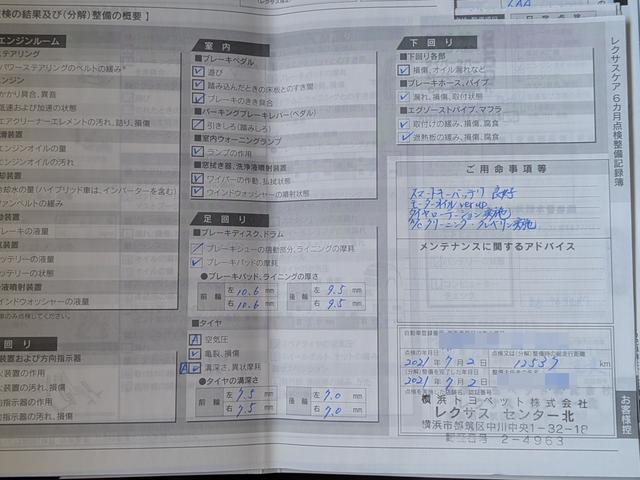 点検の結果及び(分解)整備の概要】
エンジンルーム
ステアリング
パワーステアリングのベルトの緩み
エンジン
かかり具合、異音
低速および加速の状態
エアクリーナーエレメントの汚れ、詰り、損傷
エンジンオイルの量
エンジンオイルの汚れ
冷却水の量(ハイブリッド車は、インバーターを含む)
ファンベルトの緩み
ブレーキの液量
バッテリーの液量
バッテリーの状態
ウインドウォッシャーの液量
回り
装置および方向指示器
装置の作用
の汚れ、損傷
指示器の作用
指示器の汚れ、損傷
室内
■ブレーキペダル
遊び
踏み込んだときの床板とのすき間
ブレーキのきき具合
■パーキングブレーキレバー(ペダル)
引きしろ(踏みしろ)
■室内ウォーニングランプ
ランプの作用
■窓拭き器、洗浄液噴射装置
ワイパーの作動、払拭状態
ウインドウォッシャーの噴射状態
足回り
■ブレーキディスク、ドラム
ブレーキシューの摺動部分、ライニングの摩耗
ブレーキパッドの摩耗
●ブレーキパッド、ライニングの厚さ
前輪 左 10.6 mm 後輪 左 9.5 mm
右 10.6 mm 右 9.5 mm
■タイヤ
A 空気圧
亀裂、損傷
A 溝深さ、異状摩耗
●タイヤの溝深さ
前輪 左 7.5 mm 後輪 左 7.0 mm
右 7.5 mm 右 7.0 mm
下回り
■下回り各部
損傷、オイル漏れなど
■ブレーキホース、パイプ
漏れ、損傷、取付状態
■エグゾーストパイプ、マフラ
取付けの緩み、損傷、腐食
遮熱板の緩み、損傷、腐食
ご用命事項等
スマートキーバッテリ 良好
モーターオイル ver up
タイヤローテーション実施
メンテナンスに関するアドバイス
点検の年月日
2021年9月2日
点検又は(分解)整備時の総走行距離
12557 km
(分解)整備を完了した年月日
2021年9月2日
横浜トヨペット株式会社
レクサス センター北
横浜市都筑区中川中央1-32-18
2-4963
レクサスケア 6カ月点検整備記録簿
お客様控